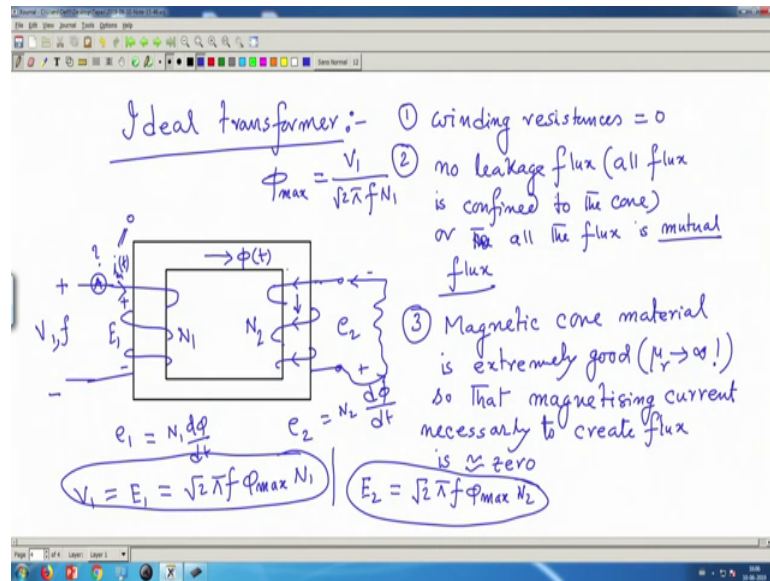 File Edit View Journal Tools Options Help
Sans Normal 12
Ideal transformer:-
φmax = V1 / √2 π f N1
① winding resistances = 0
② no leakage flux (all flux
is confined to the core)
or all the flux is mutual
flux
③ Magnetic core material
is extremely good (μr → ∞!)
so that magnetising current
necessarly to create flux
is ≈ zero
0
?
A
im(t)
→ φ(t)
+
+
-
V1,f
E1
N1
N2
e2
-
-
+
e1 = N1 dφ/dt
e2 = N2 dφ/dt
V1 = E1 = √2 π f φmax N1
E2 = √2 π f φmax N2
Page 4 of 4 Layer: Layer 1